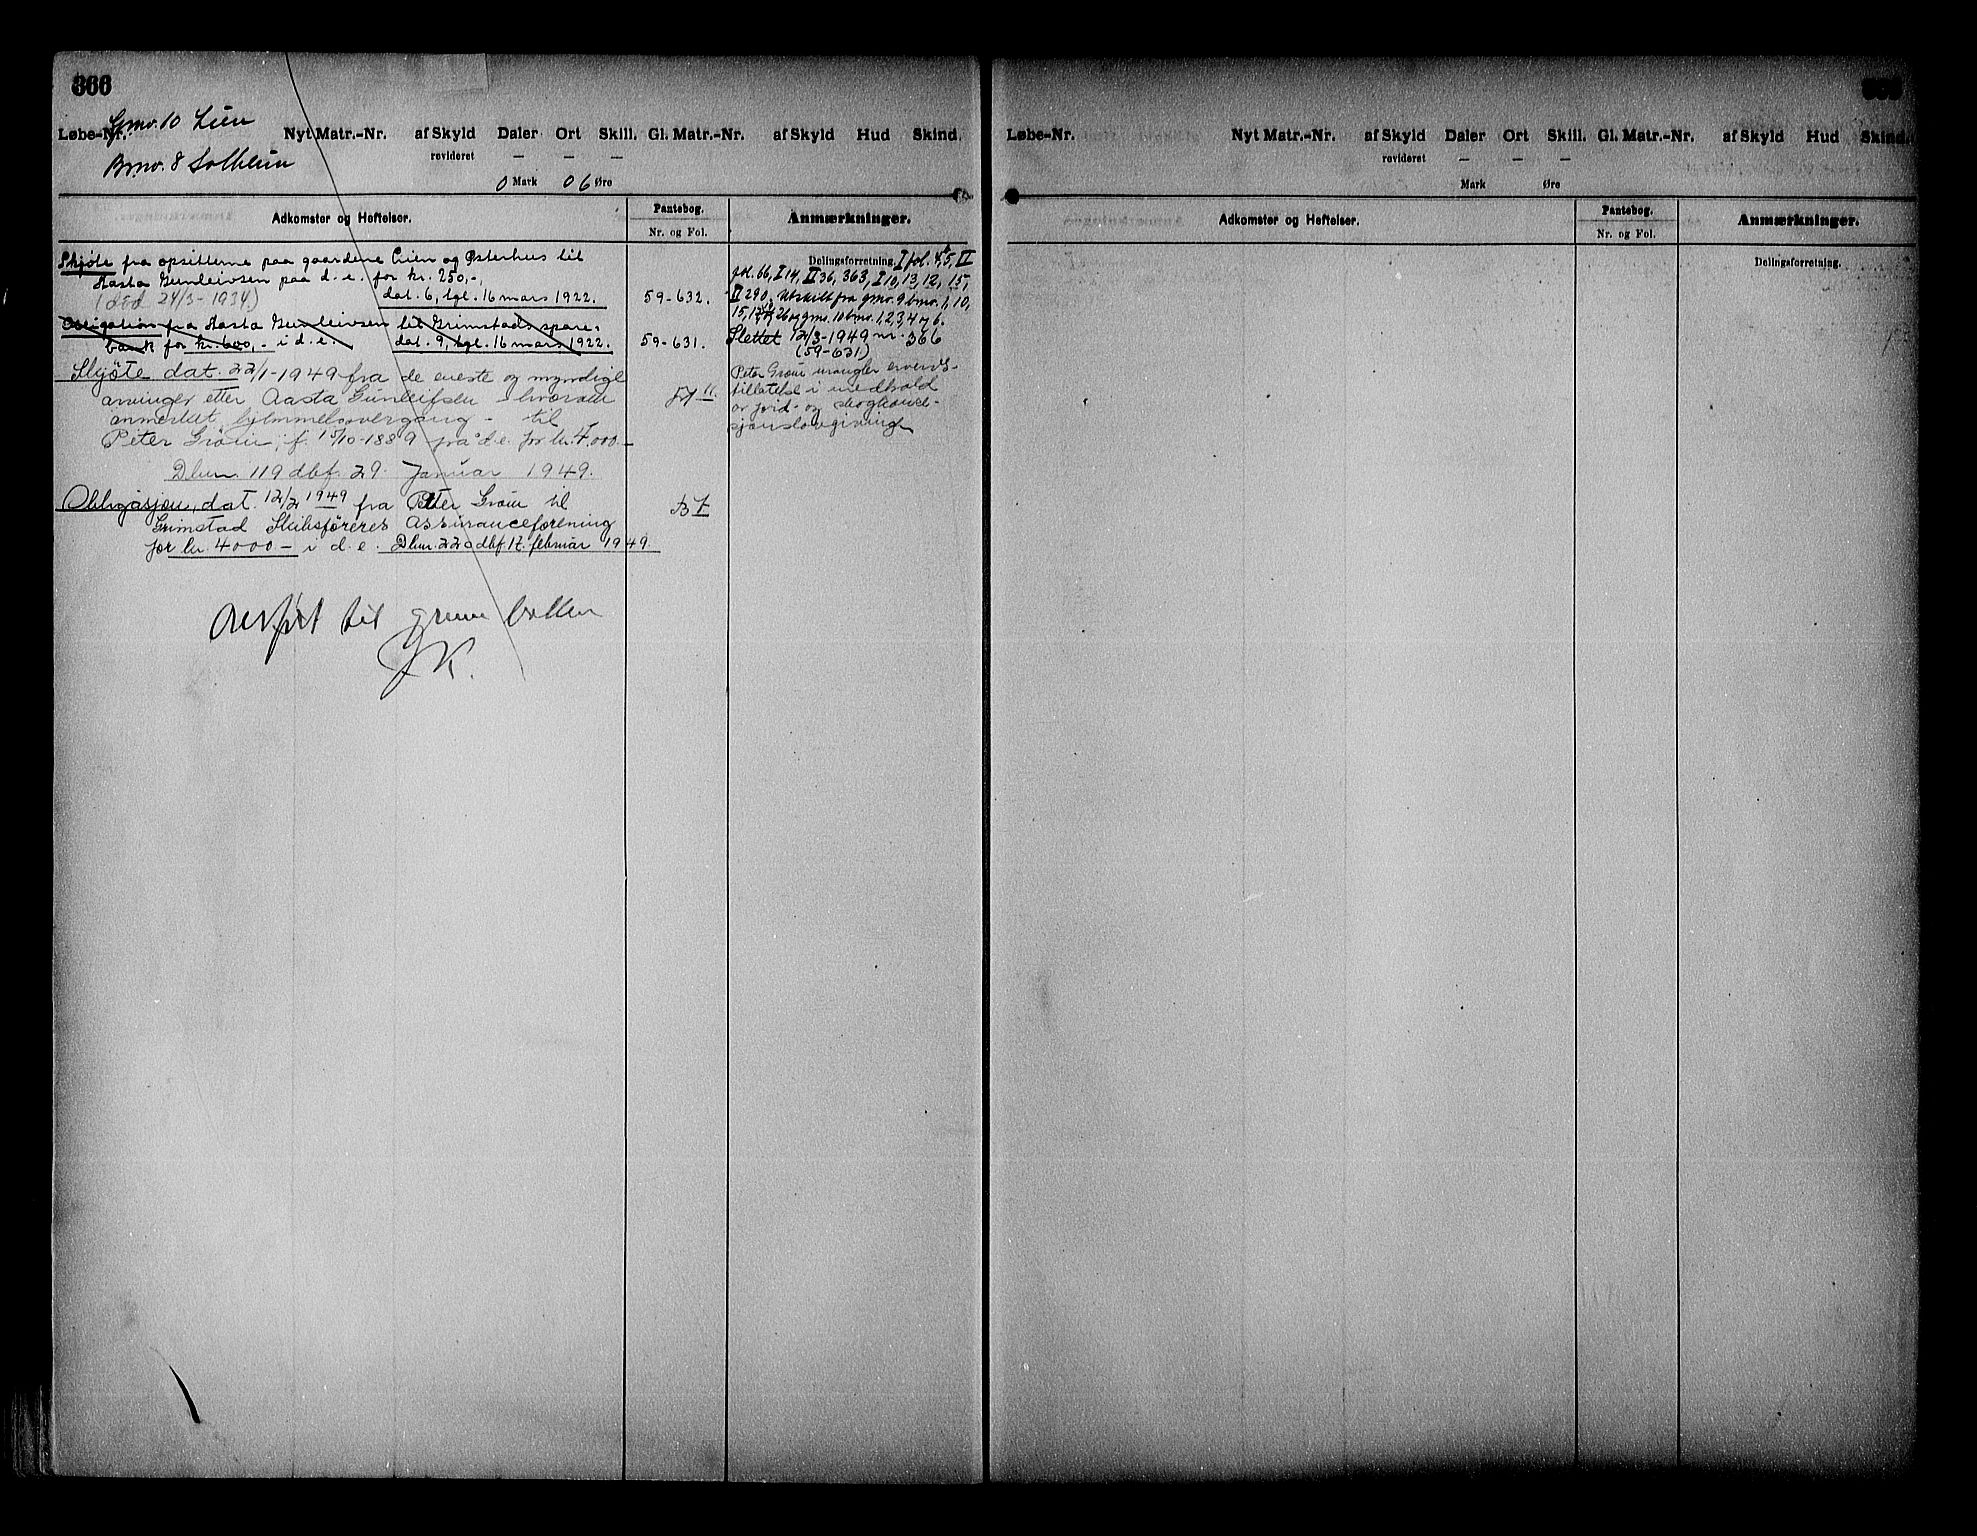 366
Gmo. 10 Lien
Løbe-Nr. Nyt Matr.-Nr. af Skyld Daler Ort Skill. Gl. Matr.-Nr. af Skyld Hud Skind.
revideret — — —
Bmo. 8 Solheim
0 Mark 06 Øre
Adkomster og Heftelser. Pantebog. Anmærkninger.
Nr. og Fol.
Skjøte fra opsitterne paa gaardene Lien og Østerhus til
Aasta Gunleivsen paa d. e. for kr. 250,-,
(død 24/3-1934) dat. 6, tgl. 16 mars 1922. 59-632.
Obligation fra Aasta Gunleivsen til Grimstads spare-
bank for kr. 600,- i d. e. dat. 9, tgl. 16 mars 1922. 59-631.
Skjøte dat. 22/1-1949 fra de eneste og myndige
arvinger etter Aasta Gunleifsen - hvorved
anmerket hjemmelsovergang - til
Peter Grøm, f. 15/10-1889 på d. e. for kr. 4,000.-
Dbnr. 119 dbf. 29. Januar 1949.
Obligasjon, dat. 12/2 1949 fra Peter Grøm til
Grimstad Skibsføreres Assuranceforening
for kr. 4000.- i d. e. Dbnr. 220 dbf. 17. februar 1949.
Overført til grunnboken
JK.
Delingsforretning. I fol. 4, 5, II
fol. 66, I 14, II 36, 363, I 10, 13, 12, 15,
II 290. Utskilt fra gmo. 9 bmo. 1, 10,
15, 26 og gmo. 10 bmo. 1, 2, 3, 4 og 6.
Slettet 12/3-1949 nr. 366
(59-631)
Peter Grøm mangler ervervs-
tillatelse i medhold
av jord- og skogkonse-
sjonslovgivning
Løbe-Nr. Nyt Matr.-Nr. af Skyld Daler Ort Skill. Gl. Matr.-Nr. af Skyld Hud Skind.
revideret — — —
Mark Øre
Adkomster og Heftelser. Pantebog. Anmærkninger.
Nr. og Fol.
Delingsforretning.